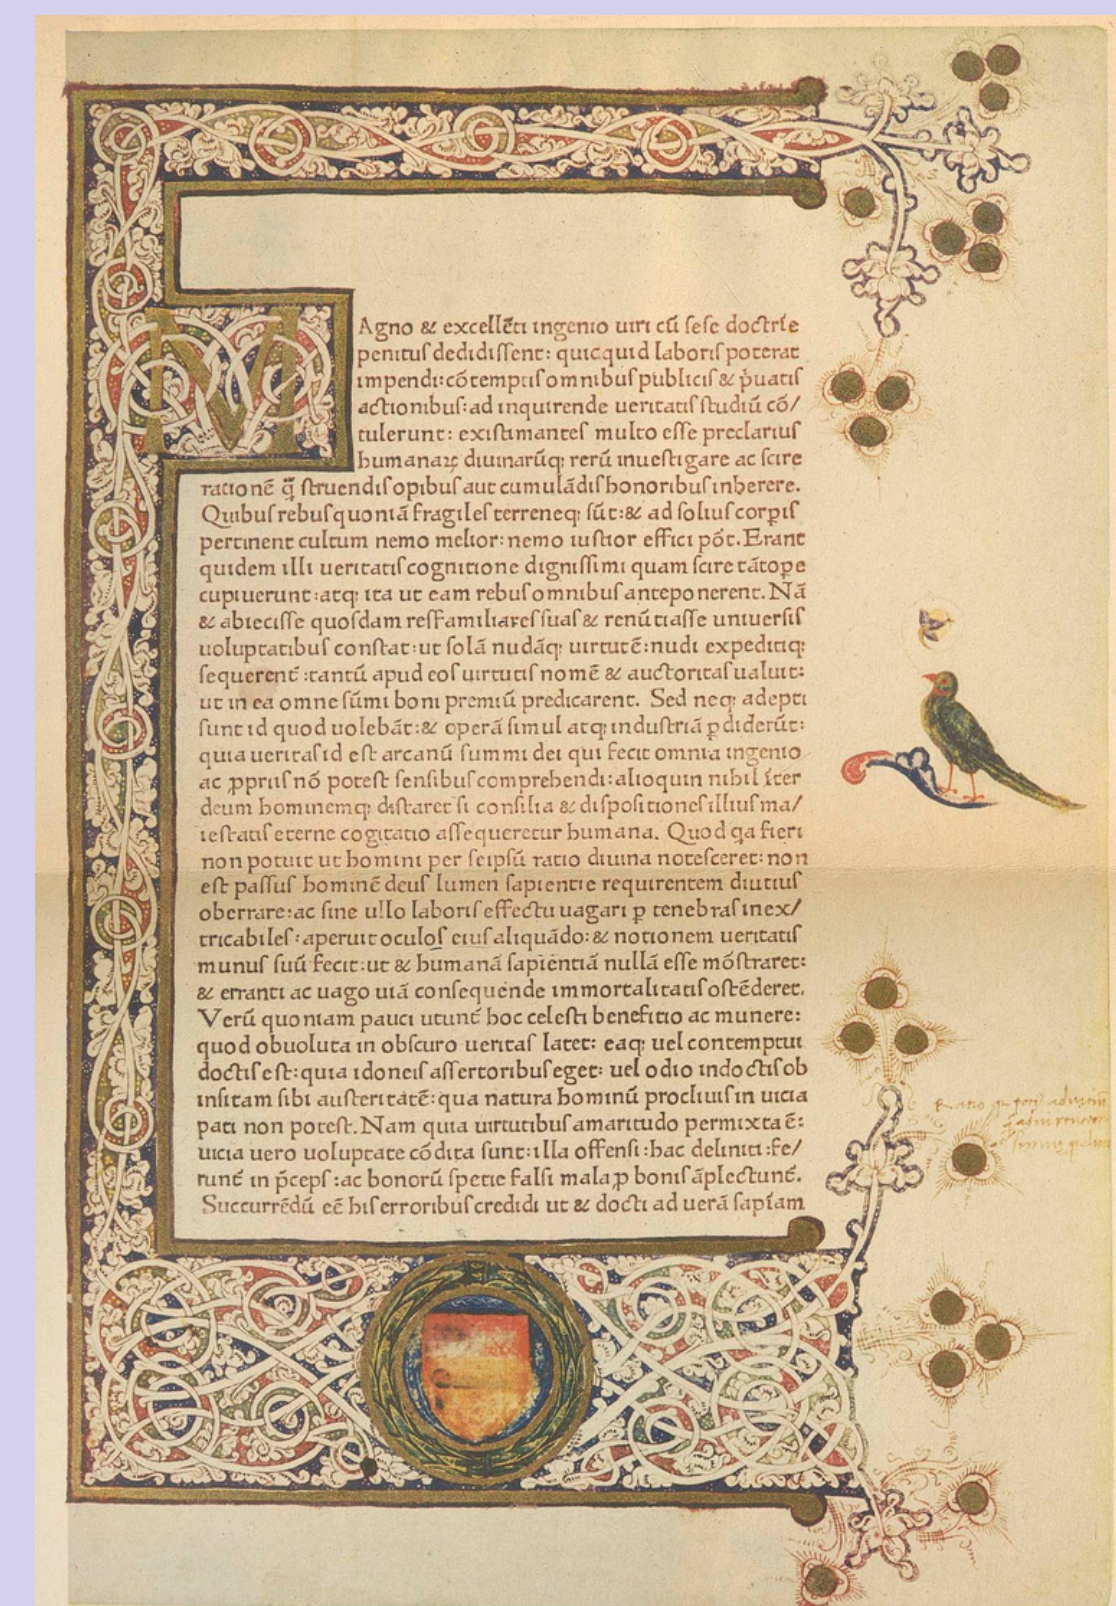 MAgno & excellẽti ingenio uiri cũ sese doctrĩe
penitus dedidissent: quicquid laboris poterat
impendi: cõtemptis omnibus publicis & p̃uatis
actionibus: ad inquirende ueritatis studiũ cõ/
tulerunt: existimantes multo esse preclarius
humanaꝝ diuinarũqꝫ rerũ inuestigare ac scire
rationẽ q̃ struendis opibus aut cumulãdis honoribus inherere.
Quibus rebus quoniã fragiles terreneqꝫ sũt: & ad solius corꝑis
pertinent cultum nemo melior: nemo iustior effici põt. Erant
quidem illi ueritatis cognitione dignissimi quam scire tãtoꝑe
cupiuerunt: atqꝫ ita ut eam rebus omnibus anteponerent. Nã
& abiecisse quosdam res familiares suas & renũtiasse uniuersis
uoluptatibus constat: ut solã nudãqꝫ uirtutẽ: nudi expeditiqꝫ
sequerent̃: tantũ apud eos uirtutis nomẽ & auctoritas ualuit:
ut in ea omne sũmi boni premiũ predicarent. Sed neqꝫ adepti
sunt id quod uolebãt: & operã simul atqꝫ industriã ꝑdiderũt:
quia ueritas id est arcanũ summi dei qui fecit omnia ingenio
ac ꝓpriis nõ potest sensibus comprehendi: alioquin nihil ĩter
deum hominemqꝫ distaret si consilia & dispositiones illius ma/
iestatis eterne cogitatio assequeretur humana. Quod qa fieri
non potuit ut homini per seipsũ ratio diuina notesceret: non
est passus hominẽ deus lumen sapientie requirentem diutius
oberrare: ac sine ullo laboris effectu uagari ꝑ tenebras inex/
tricabiles: aperuit oculos eius aliquãdo: & notionem ueritatis
munus suũ fecit: ut & humanã sapientiã nullã esse mõstraret:
& erranti ac uago uiã consequende immortalitatis ostẽderet.
Verũ quoniam pauci utunt̃ hoc celesti benefitio ac munere:
quod obuoluta in obscuro ueritas latet: eaqꝫ uel contemptui
doctis est: quia idoneis assertoribus eget: uel odio indoctis ob
insitam sibi austeritatẽ: qua natura hominũ procliuis in uicia
pati non potest. Nam quia uirtutibus amaritudo permixta ẽ:
uicia uero uoluptate cõdita sunt: illa offensi: hac deliniti: fe/
runt̃ in p̃ceps: ac bonorũ spetie falsi mala ꝓ bonis ãplectunt̃.
Succurrẽdũ eẽ his erroribus credidi ut & docti ad uerã sapĩam
Ratio